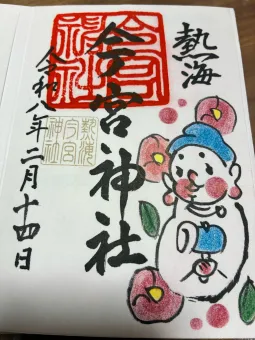 熱海
今宮神社
令和八年二月十四日
熱海
今宮
神社